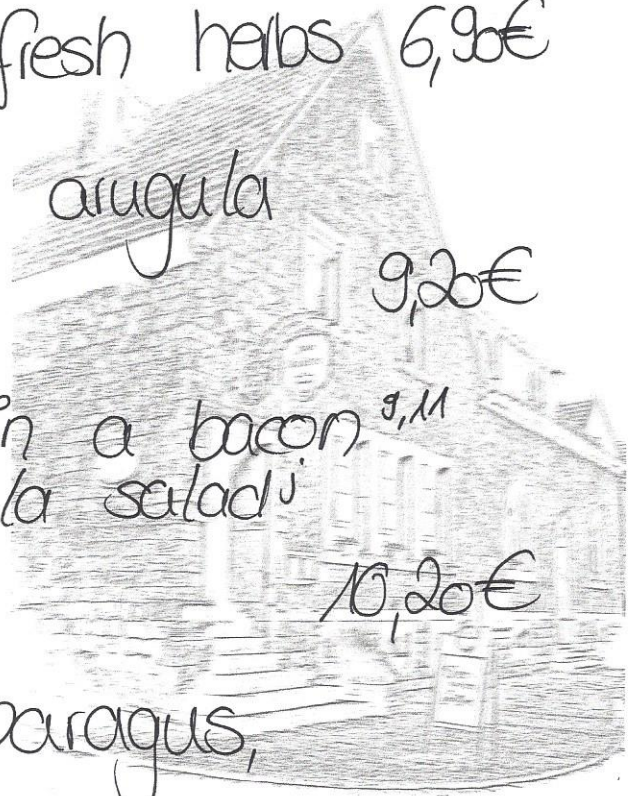 fresh herbs 6,90€
arugula
9,20€
in a bacon 9,11
la salad j
10,20€
paragus,